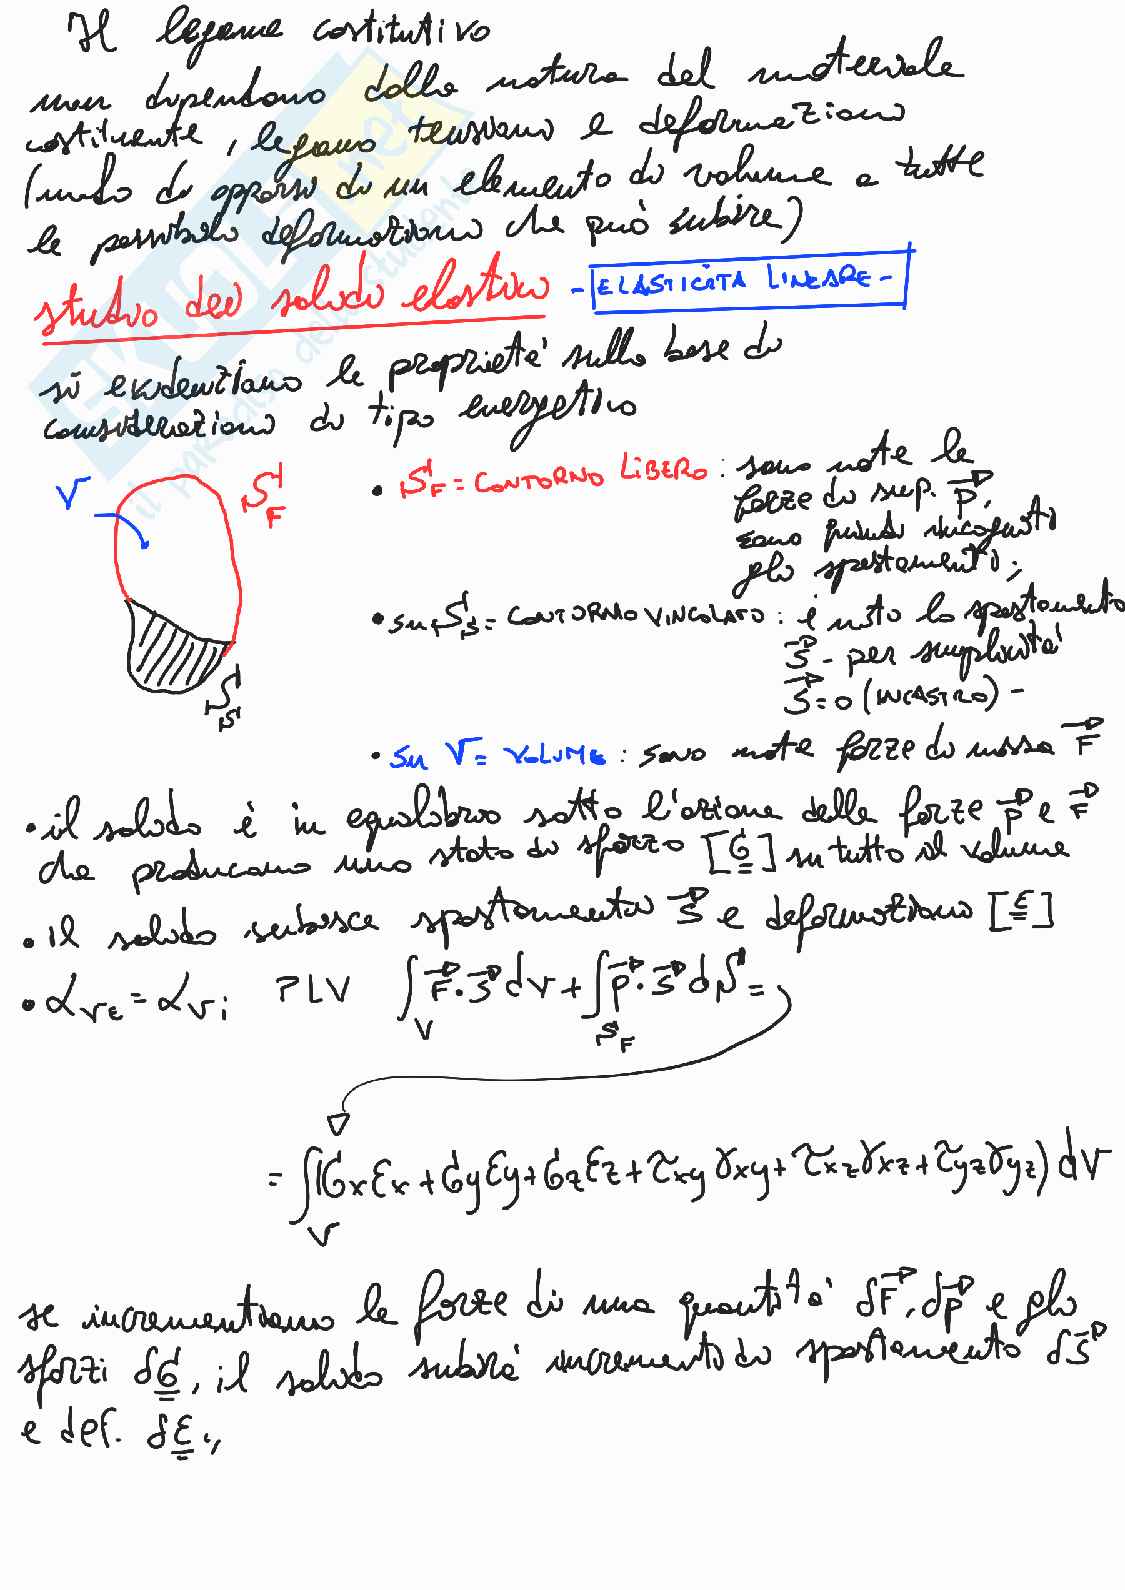 Il legame costitutivo
non dipendono dalla natura del materiale
costituente, legano tensioni e deformazioni
(modo di opporsi di un elemento di volume a tutte
le possibili deformazioni che può subire)
studio dei solidi elastici - ELASTICITÀ LINEARE -
si evidenziano le proprietà sulla base di
considerazioni di tipo energetico
V
S_F
S_S
• S_F = CONTORNO LIBERO: sono note le
forze di sup. p,
sono quindi incogniti
gli spostamenti;
• su S_S = CONTORNO VINCOLATO: è noto lo spostamento
s - per semplicità
s = 0 (INCASTRO) -
• su V = VOLUME: sono note forze di massa F
• il solido è in equilibrio sotto l'azione delle forze p e F
che producono uno stato di sforzo [σ] su tutto il volume
• il solido subisce spostamenti s e deformazioni [ε]
• L_VE = L_Vi PLV ∫_V F · s dV + ∫_{S_F} p · s dS =
= ∫_V (σx εx + σy εy + σz εz + τxy γxy + τxz γxz + τyz γyz) dV
se incrementiamo le forze di una quantità δF, δp e gli
sforzi δσ, il solido subirà incrementi di spostamento δs
e def. δε.,
il paradiso dello studente